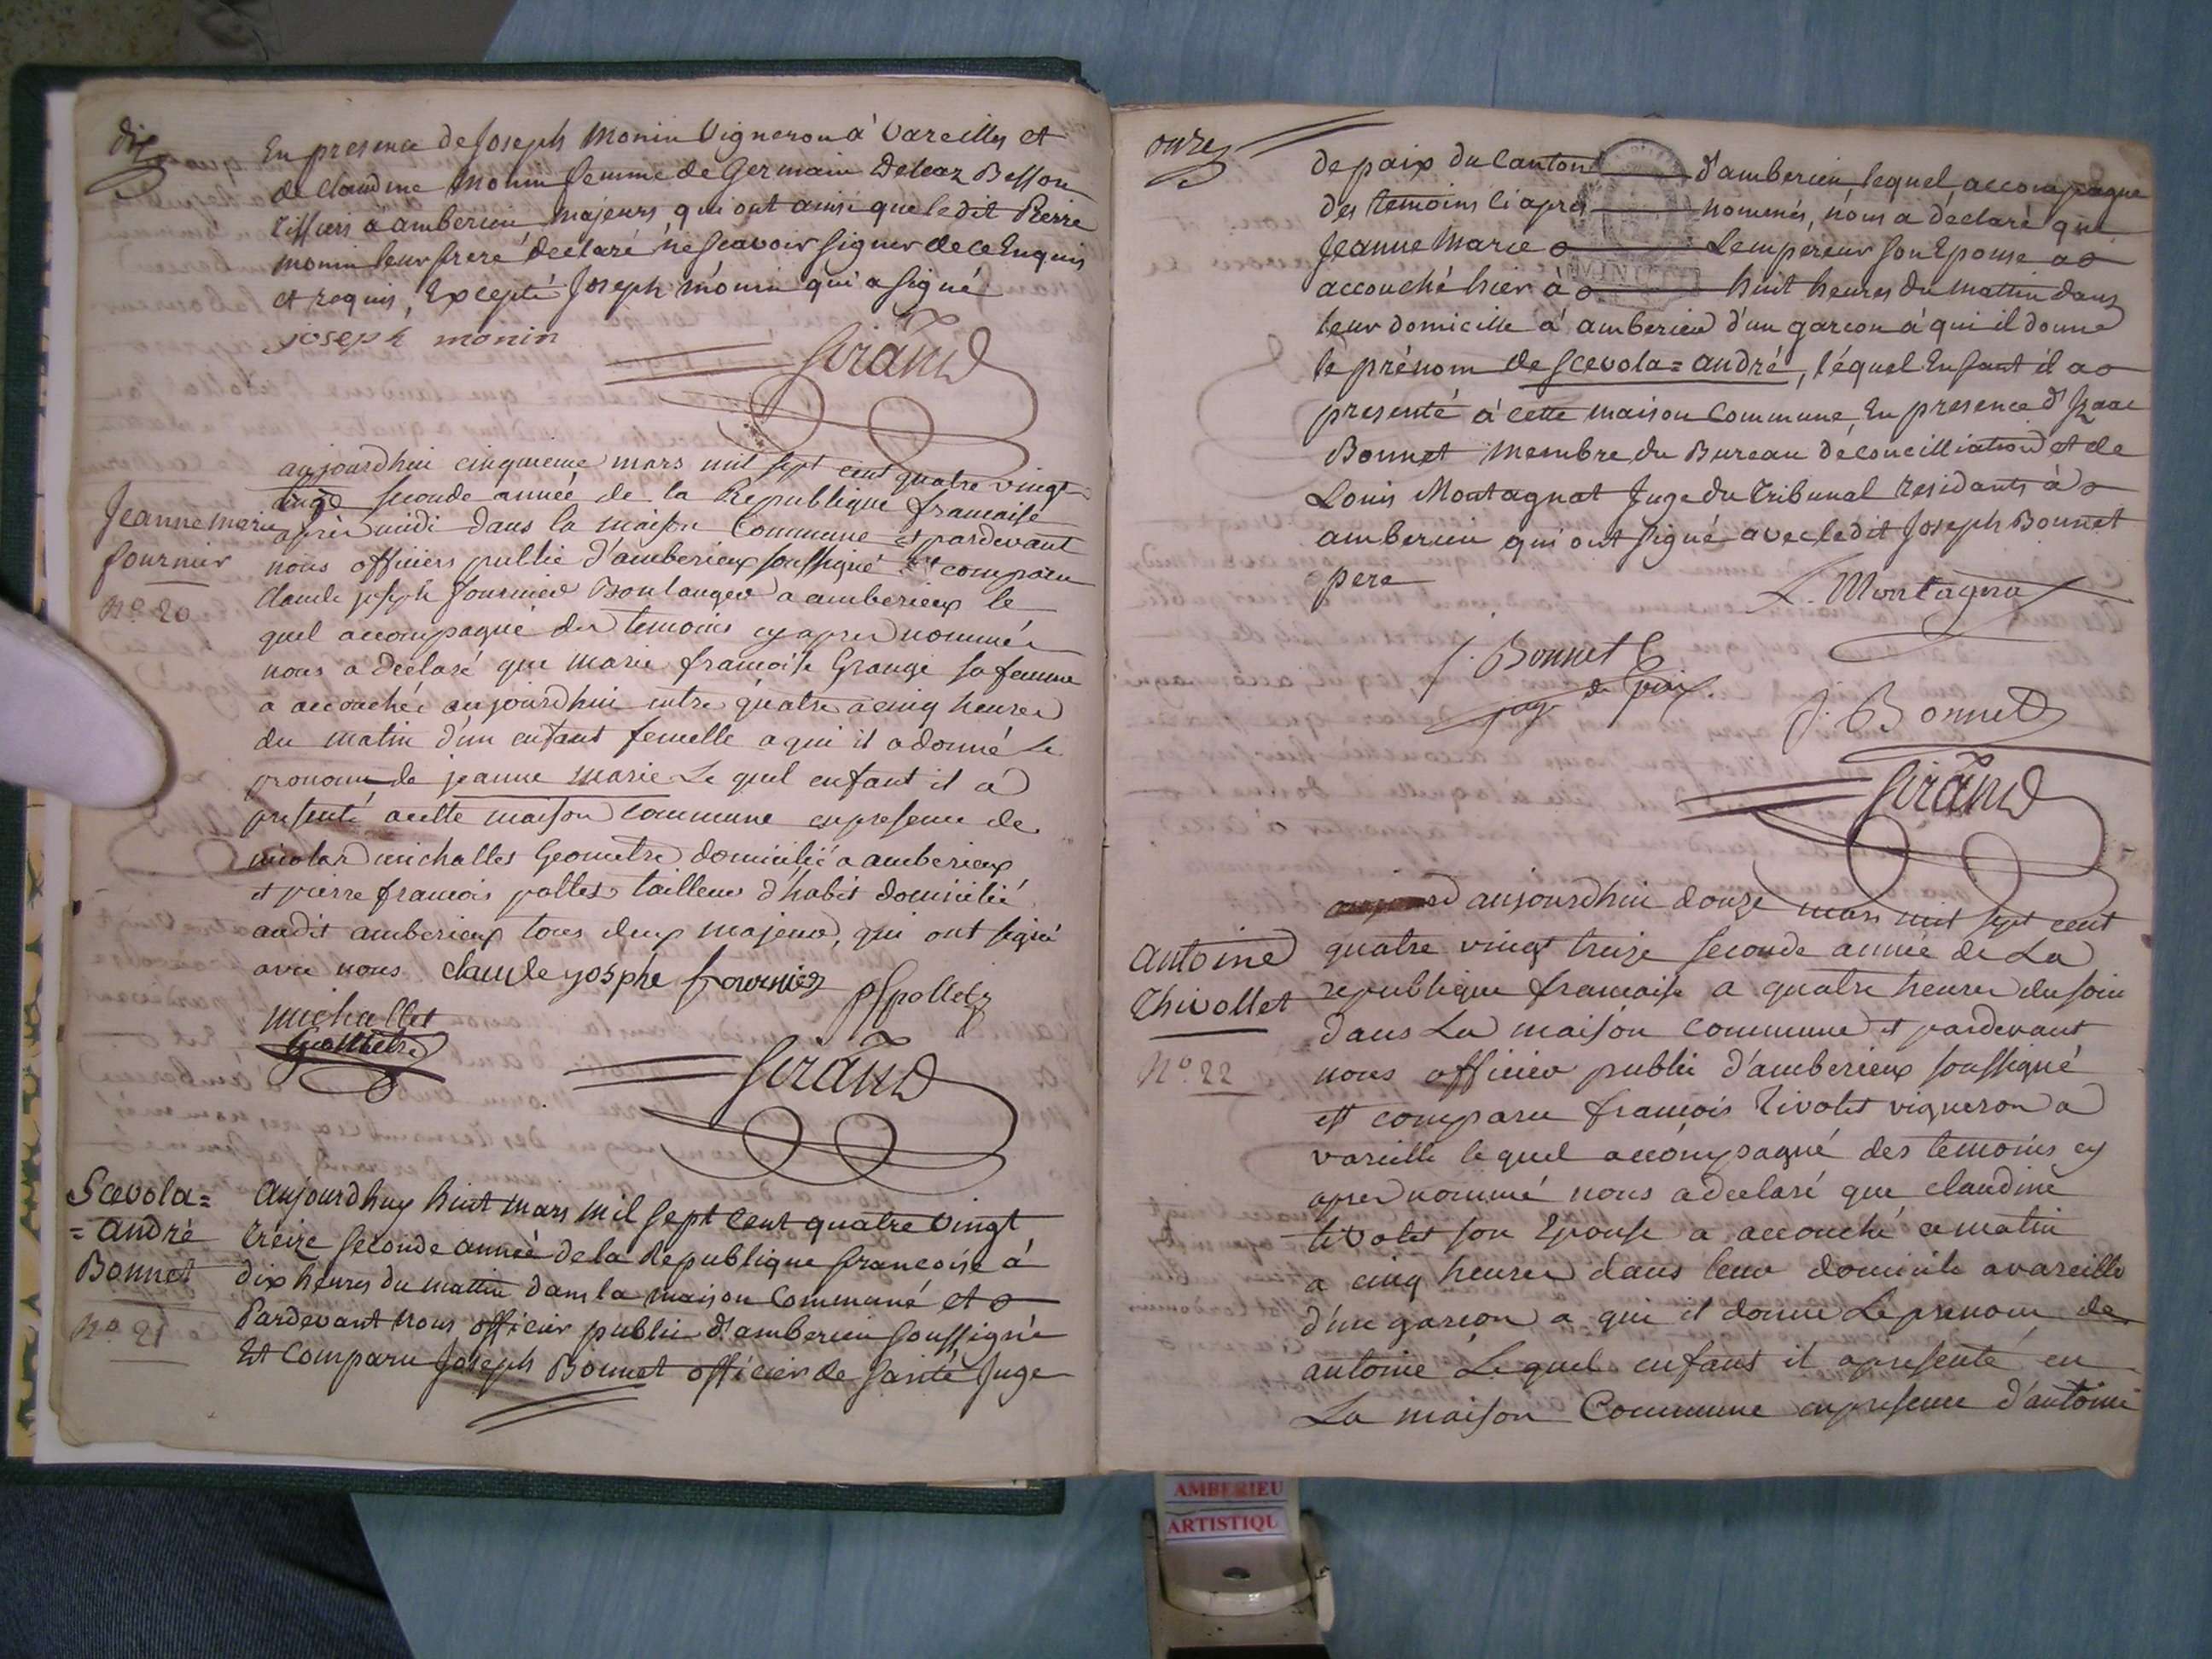 dix
En presence de Joseph Monin Vigneron à Vareilles et
de Claudine Monin femme de Germain Deleaz Besson
tissiers à amberieu majeurs, qui ont ainsi que ledit Pierre
monin leur frere déclaré ne sçavoir signer de ce Enquis
et requis, Excepté Joseph monin qui a signé
joseph monin
Giraud
aujourdhui cinquieme mars mil sept cent quatre vingt
seconde année de la Republique francaise
Jeanne marie
apres midi dans la maison Commune et pardevant
fournier
nous officiers public d'amberieux soussigné est comparu
N.o 20
Claude joseph fournier Boulanger a amberieux le
quel accompagné des temoins cy apres nommés
nous a declaré que marie francoise Grange sa femme
a accouchée aujourdhui entre quatre a cinq heures
du matin d'un enfant femelle a qui il a donné le
pronom de jeanne marie Le quel enfant il a
presenté a cette maison commune en presence de
nicolas michallet Geometre domicilié a amberieux
et pierre francois pollet tailleur d'habit domicilié
audit amberieux tous deux majeurs, qui ont signé
avec nous claude yosphe fournier pfpollet
michallet
Geometre
Giraud
Scevola=
=andrè
Bonnet
N.o 21
Aujourdhuy huit mars mil sept Cent quatre vingt
treize seconde année de la Republique françoise à
dix heures du mattin dans la maison Communé et
Pardevant nous officier public d'amberieu soussigné
Est Comparu Joseph Bonnet officier de santé, Juge
onze
de paix du Canton d'amberieu, lequel accompagne
des temoins ci après nommés, nous a déclaré que
Jeanne Marie Lempereur son Epouse a
accouché hier à huit heures du mattin dans
leur domicille à amberieu d'un garcon à qui il donne
le prénom de Scevola=andré, léquel Enfant il a
presenté à cette maison Commune, En presence d'Izaac
Bonnet membre du Bureau de conciliation et de
Louis Montagnat Juge du tribunal residants à
amberieu qui ont signé avec ledit Joseph Bonnet
pere
L. Montagnat
J. Bonnet
juge de paix.
J. Bonnet
Giraud
aujourdhui douze mars mil sept cent
Antoine
quatre vingt treize seconde année de La
Thivollet
republique francaise a quatre heures du soir
dans La maison commune et pardevant
N.o 22
nous officier public d'amberieux soussigné
est comparu francois tivolet vigneron a
vareille lequel accompagné des temoins cy
apres nommé nous a declaré que claudine
tivolet son Epouse a accouché ce matin
a cinq heures dans leur domicile a vareille
d'un garcon a qui il donne Le prenom de
antoine Lequel enfant il a presenté en
La maison Commune en presence d'antoine
AMBERIEU
ARTISTIQU